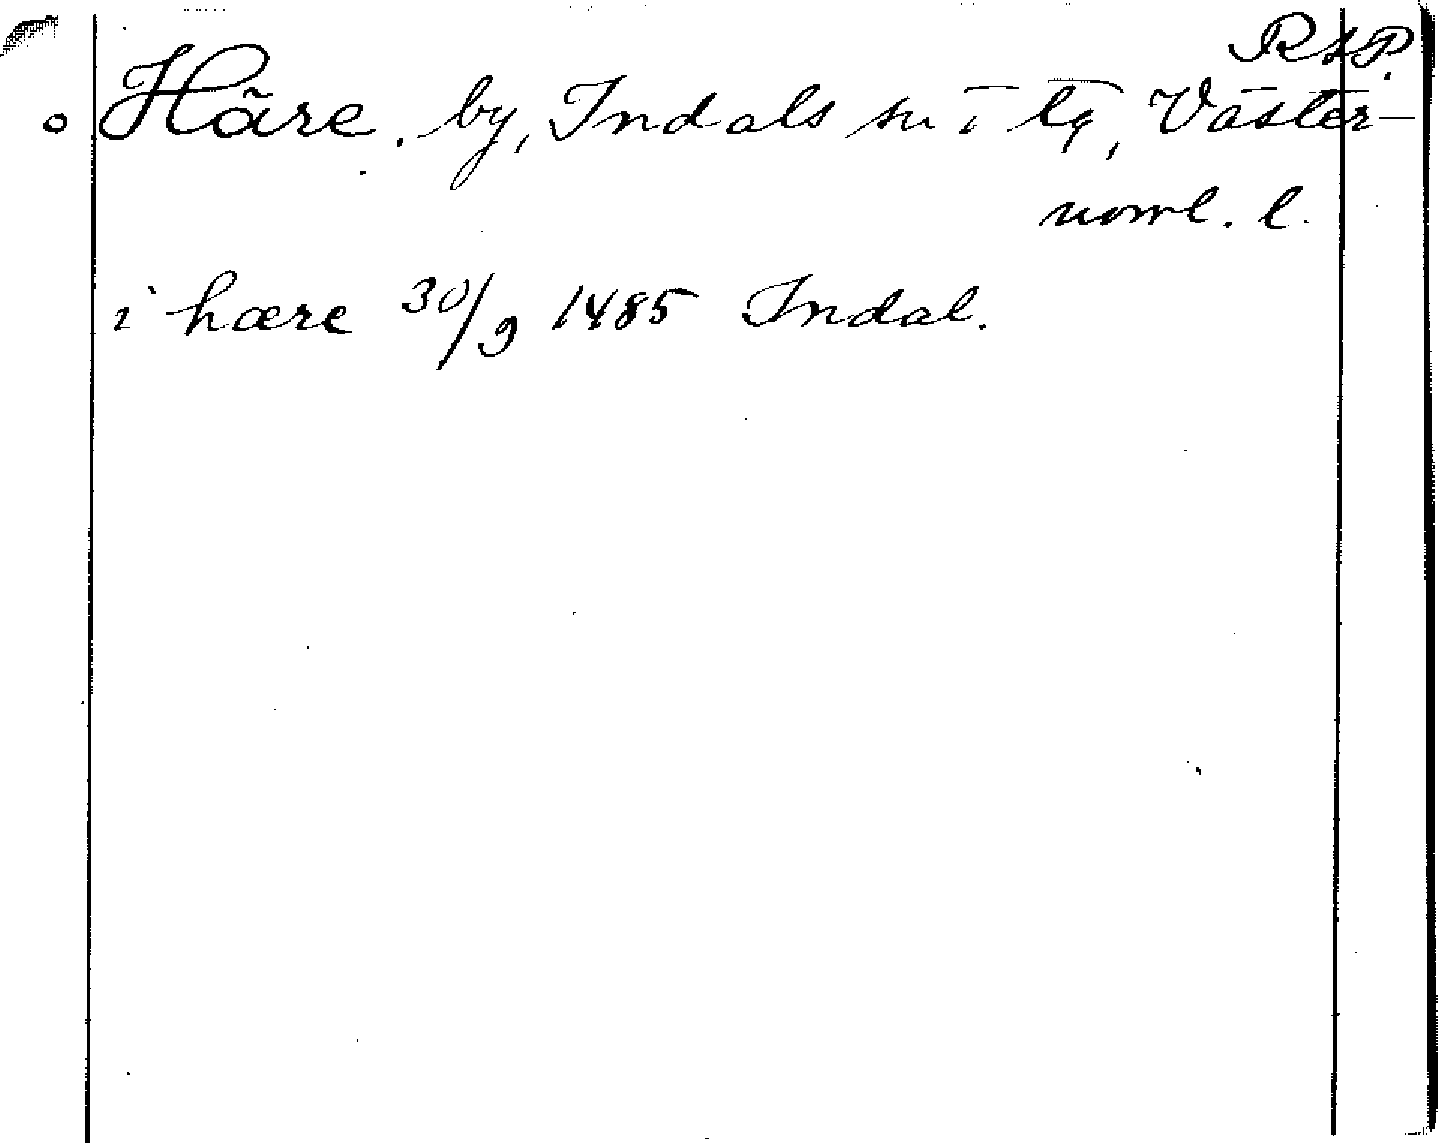 RAP.
Häre. by, Indals sn i lg, Väster-
norrl. l.
i hære 30/9 1485 Indal.